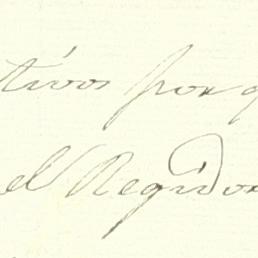 tivos por q
el Regidor